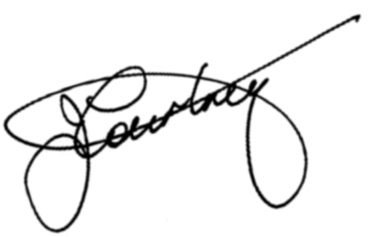 J Courtney